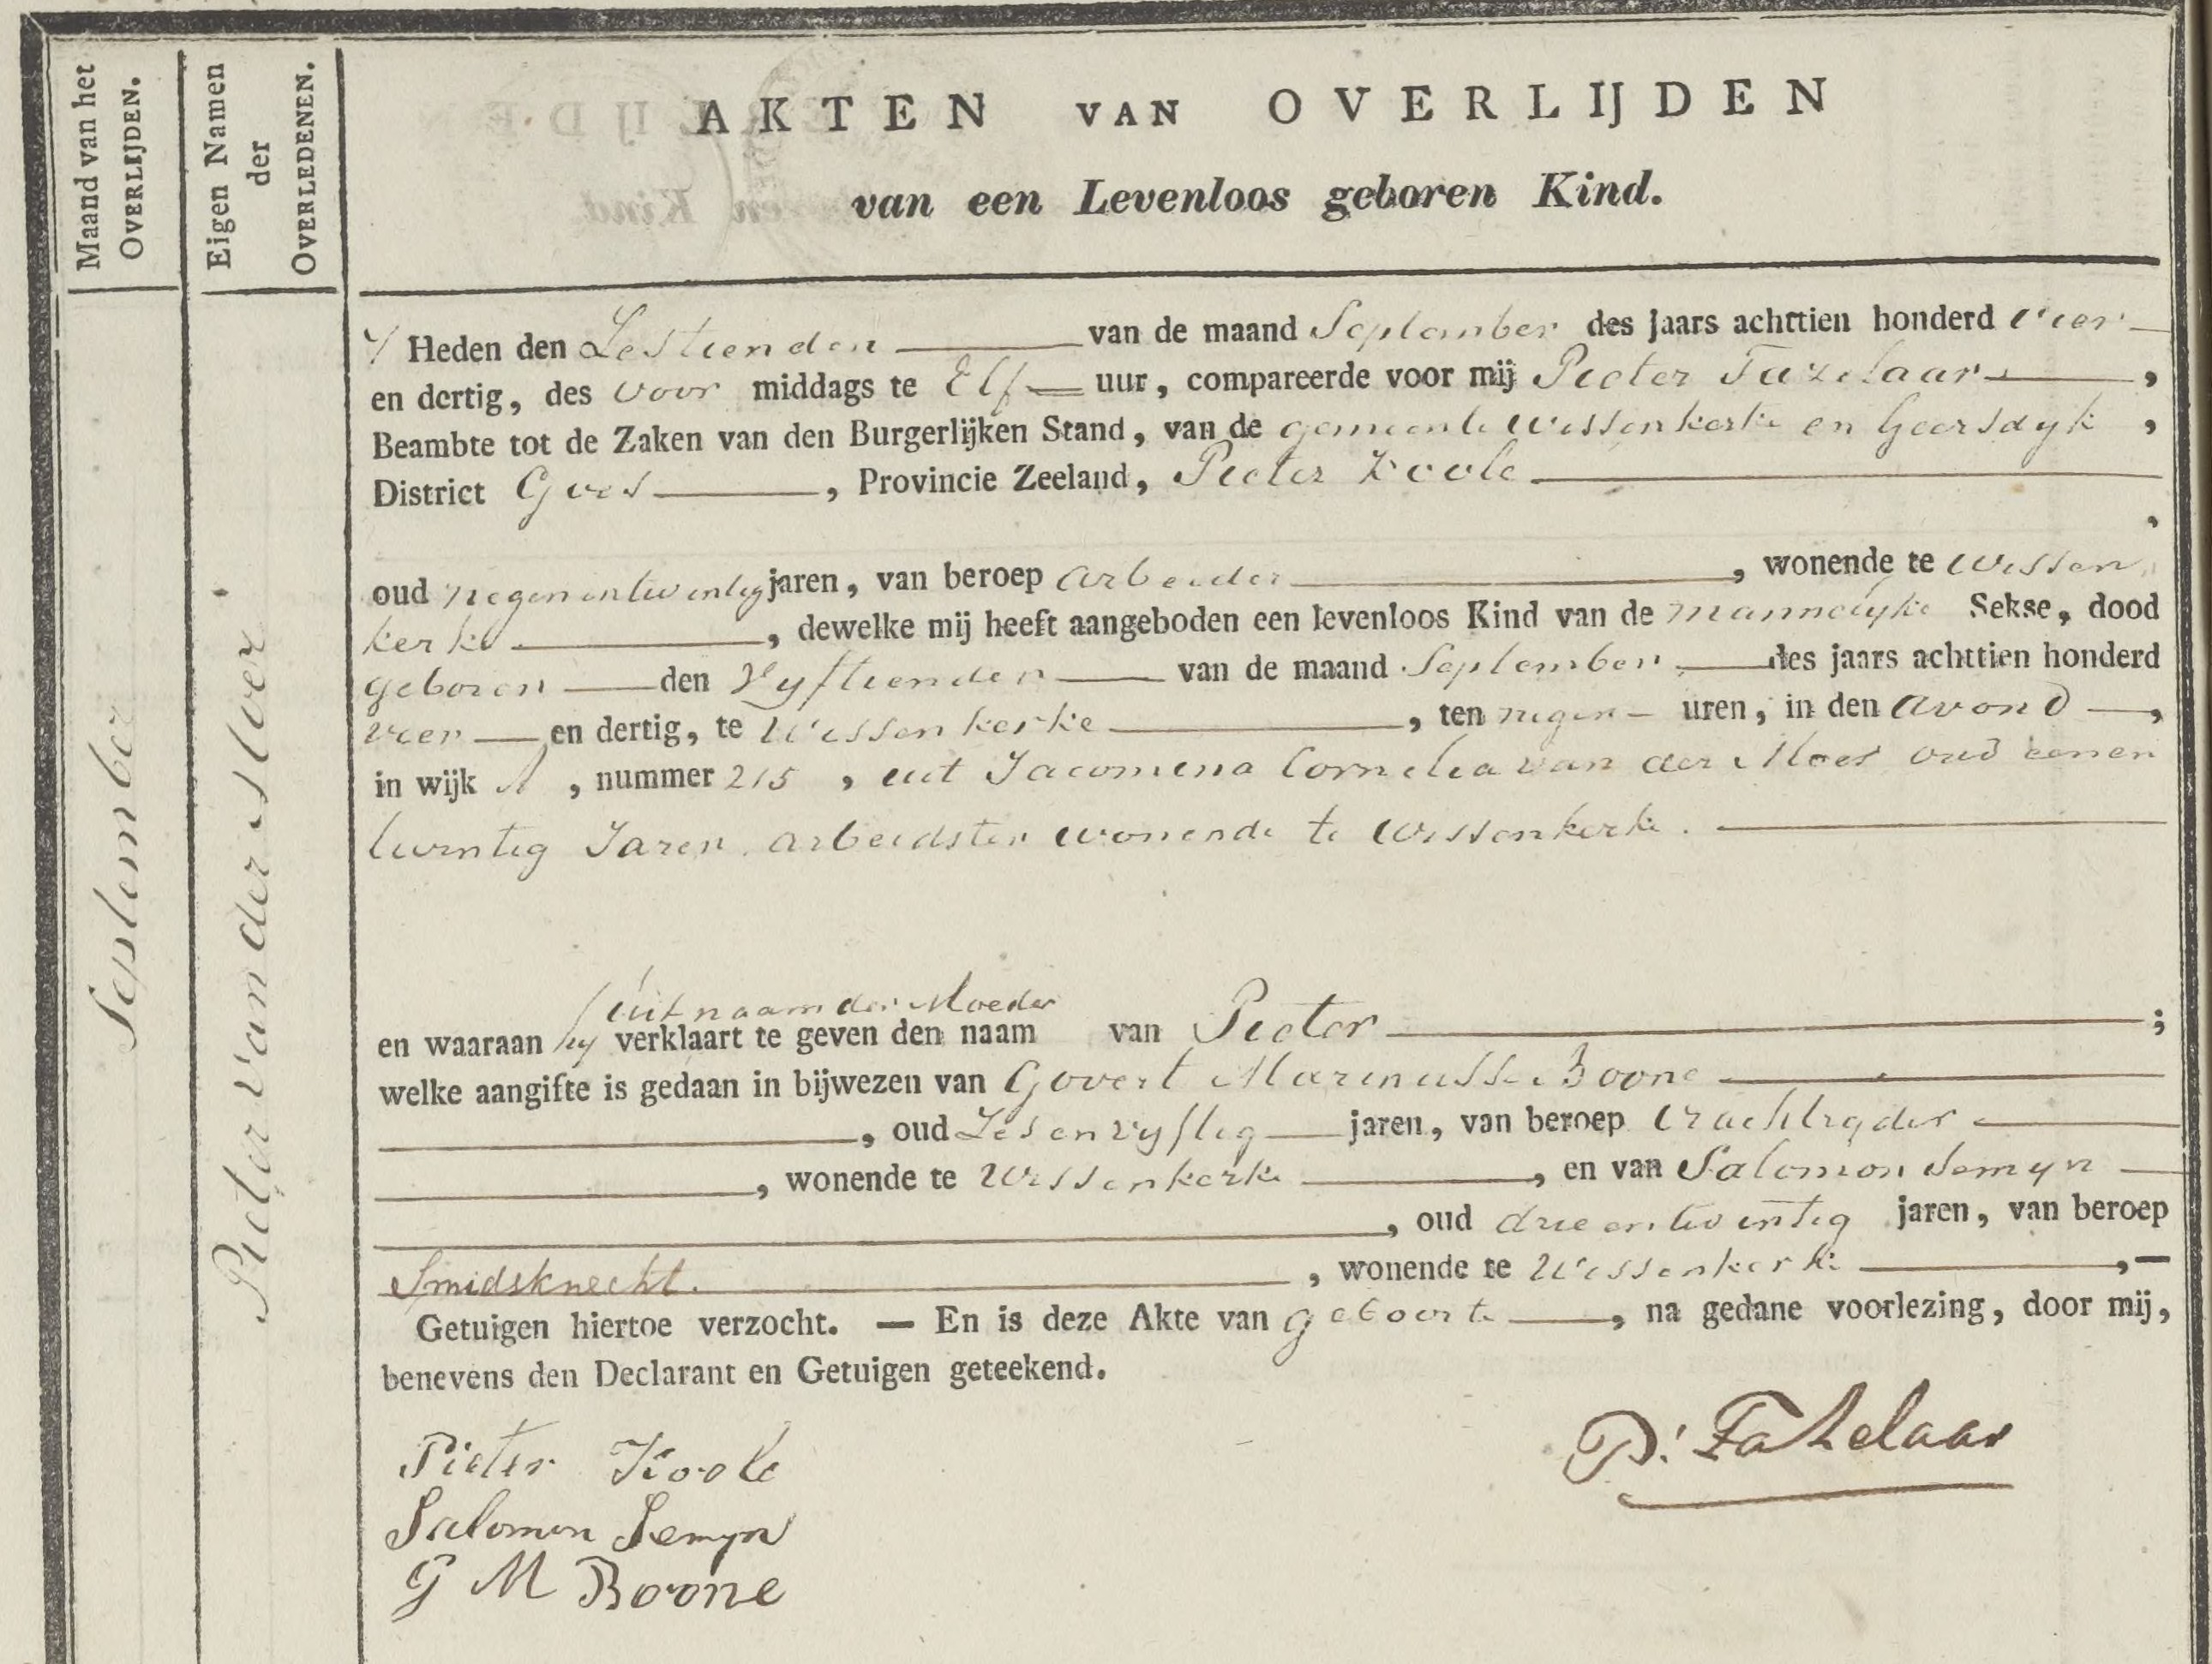 Maand van het
OVERLIJDEN.
Eigen Namen
der
OVERLEDENEN.
AKTEN VAN OVERLIJDEN
van een Levenloos geboren Kind.
September
Pieter van der Moer
Heden den Zestienden van de maand September des jaars achttien honderd vier
en dertig, des voor middags te Elf uur, compareerde voor mij Pieter Fazelaar,
Beambte tot de Zaken van den Burgerlijken Stand, van de gemeente Wissenkerke en Geersdyk,
District Goes, Provincie Zeeland, Pieter Koole
,
oud negenentwintig jaren, van beroep arbeider, wonende te Wissen
kerke, dewelke mij heeft aangeboden een levenloos Kind van de mannelyke Sekse, dood
geboren den Vyftienden van de maand September des jaars achttien honderd
vier en dertig, te Wissenkerke, ten negen uren, in den avond,
in wijk A, nummer 215, uit Jacomina Cornelia van der Moer oud eenen
twintig Jaren arbeidster wonende te Wissenkerke.
uit naam der Moeder
en waaraan hy verklaart te geven den naam van Pieter;
welke aangifte is gedaan in bijwezen van Govert Marinusse Boone
, oud Zesenvyftig jaren, van beroep Vrachtryder
, wonende te Wissenkerke, en van Salomon Semyn
, oud drieentwintig jaren, van beroep
Smidsknecht., wonende te Wissenkerke,—
Getuigen hiertoe verzocht. — En is deze Akte van geboorte, na gedane voorlezing, door mij,
benevens den Declarant en Getuigen geteekend.
Pieter Koole
P. Fazelaar
Salomon Semyn
G M Boone